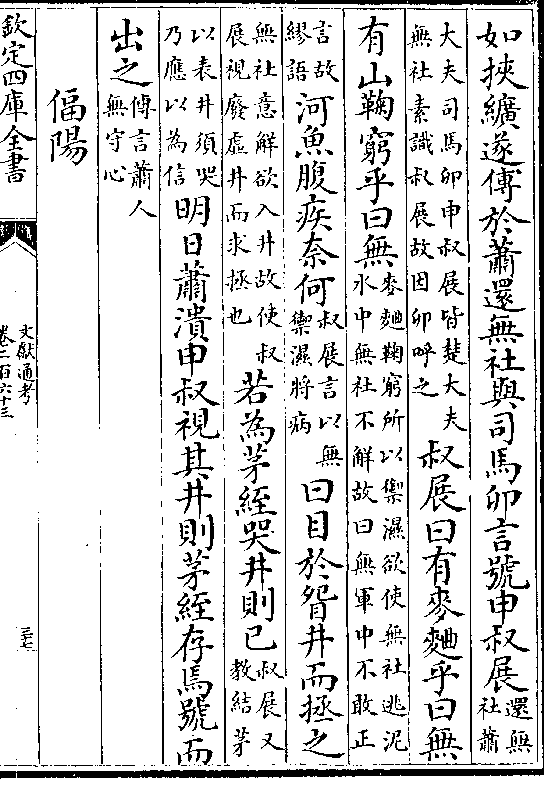 如挾纊遂傳於蕭還無社與司馬卯言號申叔展還無社蕭
大夫司馬卯申叔展皆楚大夫無社素識叔展故因卯呼之叔展曰有麥麯乎曰無
有山鞠窮乎曰無麥麯鞠窮所以禦濕欲使無社逃泥水中無社不解故曰無軍中不敢正
言故繆語河魚腹疾奈何叔展言以無禦濕將病曰目於眢井而拯之
無社意解欲入井故使叔展視廢虛井而求拯也若為茅絰哭井則已叔展又教結茅
以表井須哭乃應以為信明日蕭潰申叔視其井則茅絰存焉號而
出之傳言蕭人無守心
偪陽
欽定四庫全書
文獻通考
卷二百六十三
三七